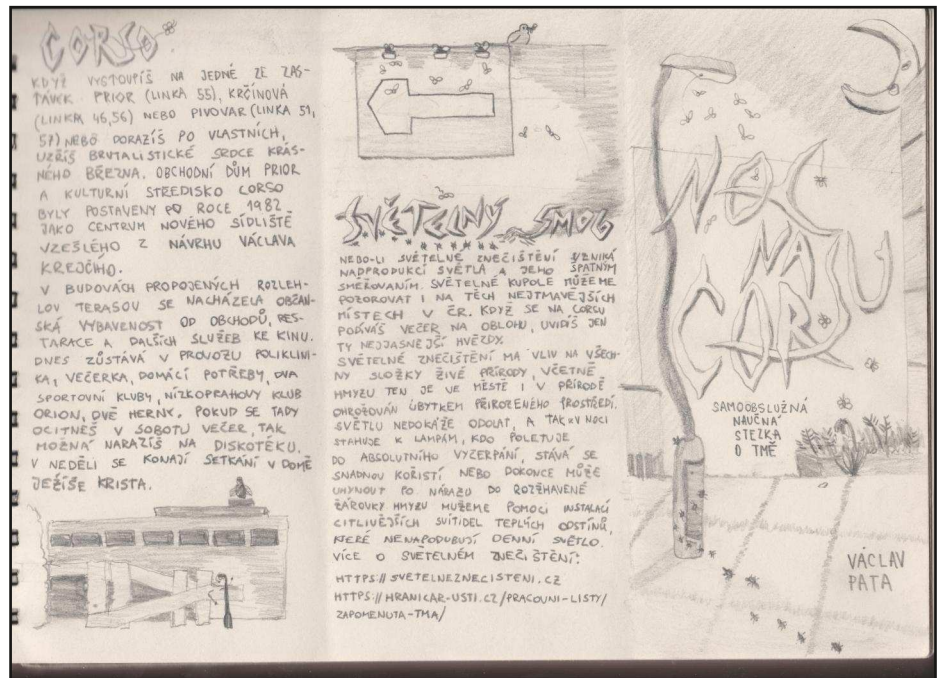 CORSO
KDYŽ VYSTOUPÍŠ NA JEDNÉ ZE ZAS-
TÁVEK PRIOR (LINKA 55), KRČÍNOVÁ
(LINKA 46,56) NEBO PIVOVAR (LINKA 51,
57) NEBO DORAZÍŠ PO VLASTNÍCH,
UZŘÍŠ BRUTALISTICKÉ SRDCE KRÁS-
NÉHO BŘEZNA. OBCHODNÍ DŮM PRIOR
A KULTURNÍ STŘEDISKO CORSO
BYLY POSTAVENY PO ROCE 1982
JAKO CENTRUM NOVÉHO SÍDLIŠTĚ
VZEŠLÉHO Z NÁVRHU VÁCLAVA
KREJČÍHO.
V BUDOVÁCH PROPOJENÝCH ROZLEH-
LOV TERASOU SE NACHÁZELA OBČAN-
SKÁ VYBAVENOST OD OBCHODŮ, RES-
TARACE A DALŠÍCH SLUŽEB KE KINU.
DNES ZŮSTÁVÁ V PROVOZU POLIKLINI-
KA, VEČERKA, DOMÁCÍ POTŘEBY, DVA
SPORTOVNÍ KLUBY, NÍZKOPRAHOVÝ KLUB
ORION, DVĚ HERNY. POKUD SE TADY
OCITNEŠ V SOBOTU VEČER, TAK
MOŽNÁ NARAZÍŠ NA DISKOTÉKU.
V NEDĚLI SE KONAJÍ SETKÁNÍ V DOMĚ
JEŽÍŠE KRISTA.
SVĚTELNÝ SMOG
NEBO-LI SVĚTELNÉ ZNEČIŠTĚNÍ VZNIKÁ
NADPRODUKCÍ SVĚTLA A JEHO ŠPATNÝM
SMĚROVÁNÍM. SVĚTELNÉ KUPOLE MŮŽEME
POZOROVAT I NA TĚCH NEJTMAVEJŠÍCH
MÍSTECH V ČR. KDYŽ SE NA CORSU
PODÍVÁŠ VEČER NA OBLOHU, UVIDÍŠ JEN
TY NEJJASNEJŠÍ HVĚZDY.
SVĚTELNÉ ZNEČIŠTĚNÍ MÁ VLIV NA VŠECH-
NY SLOŽKY ŽIVÉ PŘÍRODY, VČETNĚ
HMYZU TEN JE VE MĚSTĚ I V PŘÍRODĚ
OHROŽOVÁN ÚBYTKEM PŘIROZENÉHO PROSTŘEDÍ.
SVĚTLU NEDOKÁŽE ODOLAT, A TAK HO V NOCI
STAHUJE K LAMPÁM, KDO POLETUJE
DO ABSOLUTNÍHO VYČERPÁNÍ, STÁVÁ SE
SNADNOU KOŘISTÍ NEBO DOKONCE MŮŽE
UHYNOUT PO NÁRAZU DO ROZŽHAVENÉ
ŽÁROVKY HMYZU MUŽEME POMOCI INSTALACÍ
CITLIVĚJŠÍCH SVÍTIDEL TEPLÝCH ODSTÍNŮ,
KTERÉ NENAPODUBUJÍ DENNÍ SVĚTLO.
VÍCE O SVĚTELNÉM ZNEČIŠTĚNÍ:
HTTPS://SVETELNEZNECISTENI.CZ
HTTPS://HRANICAR-USTI.CZ/PRACOVNI-LISTY/
ZAPOMENUTA-TMA/
NOC
NA
CORSU
SAMOOBSLUŽNÁ
NAUČNÁ
STEZKA
O TMĚ
VÁCLAV
PATA